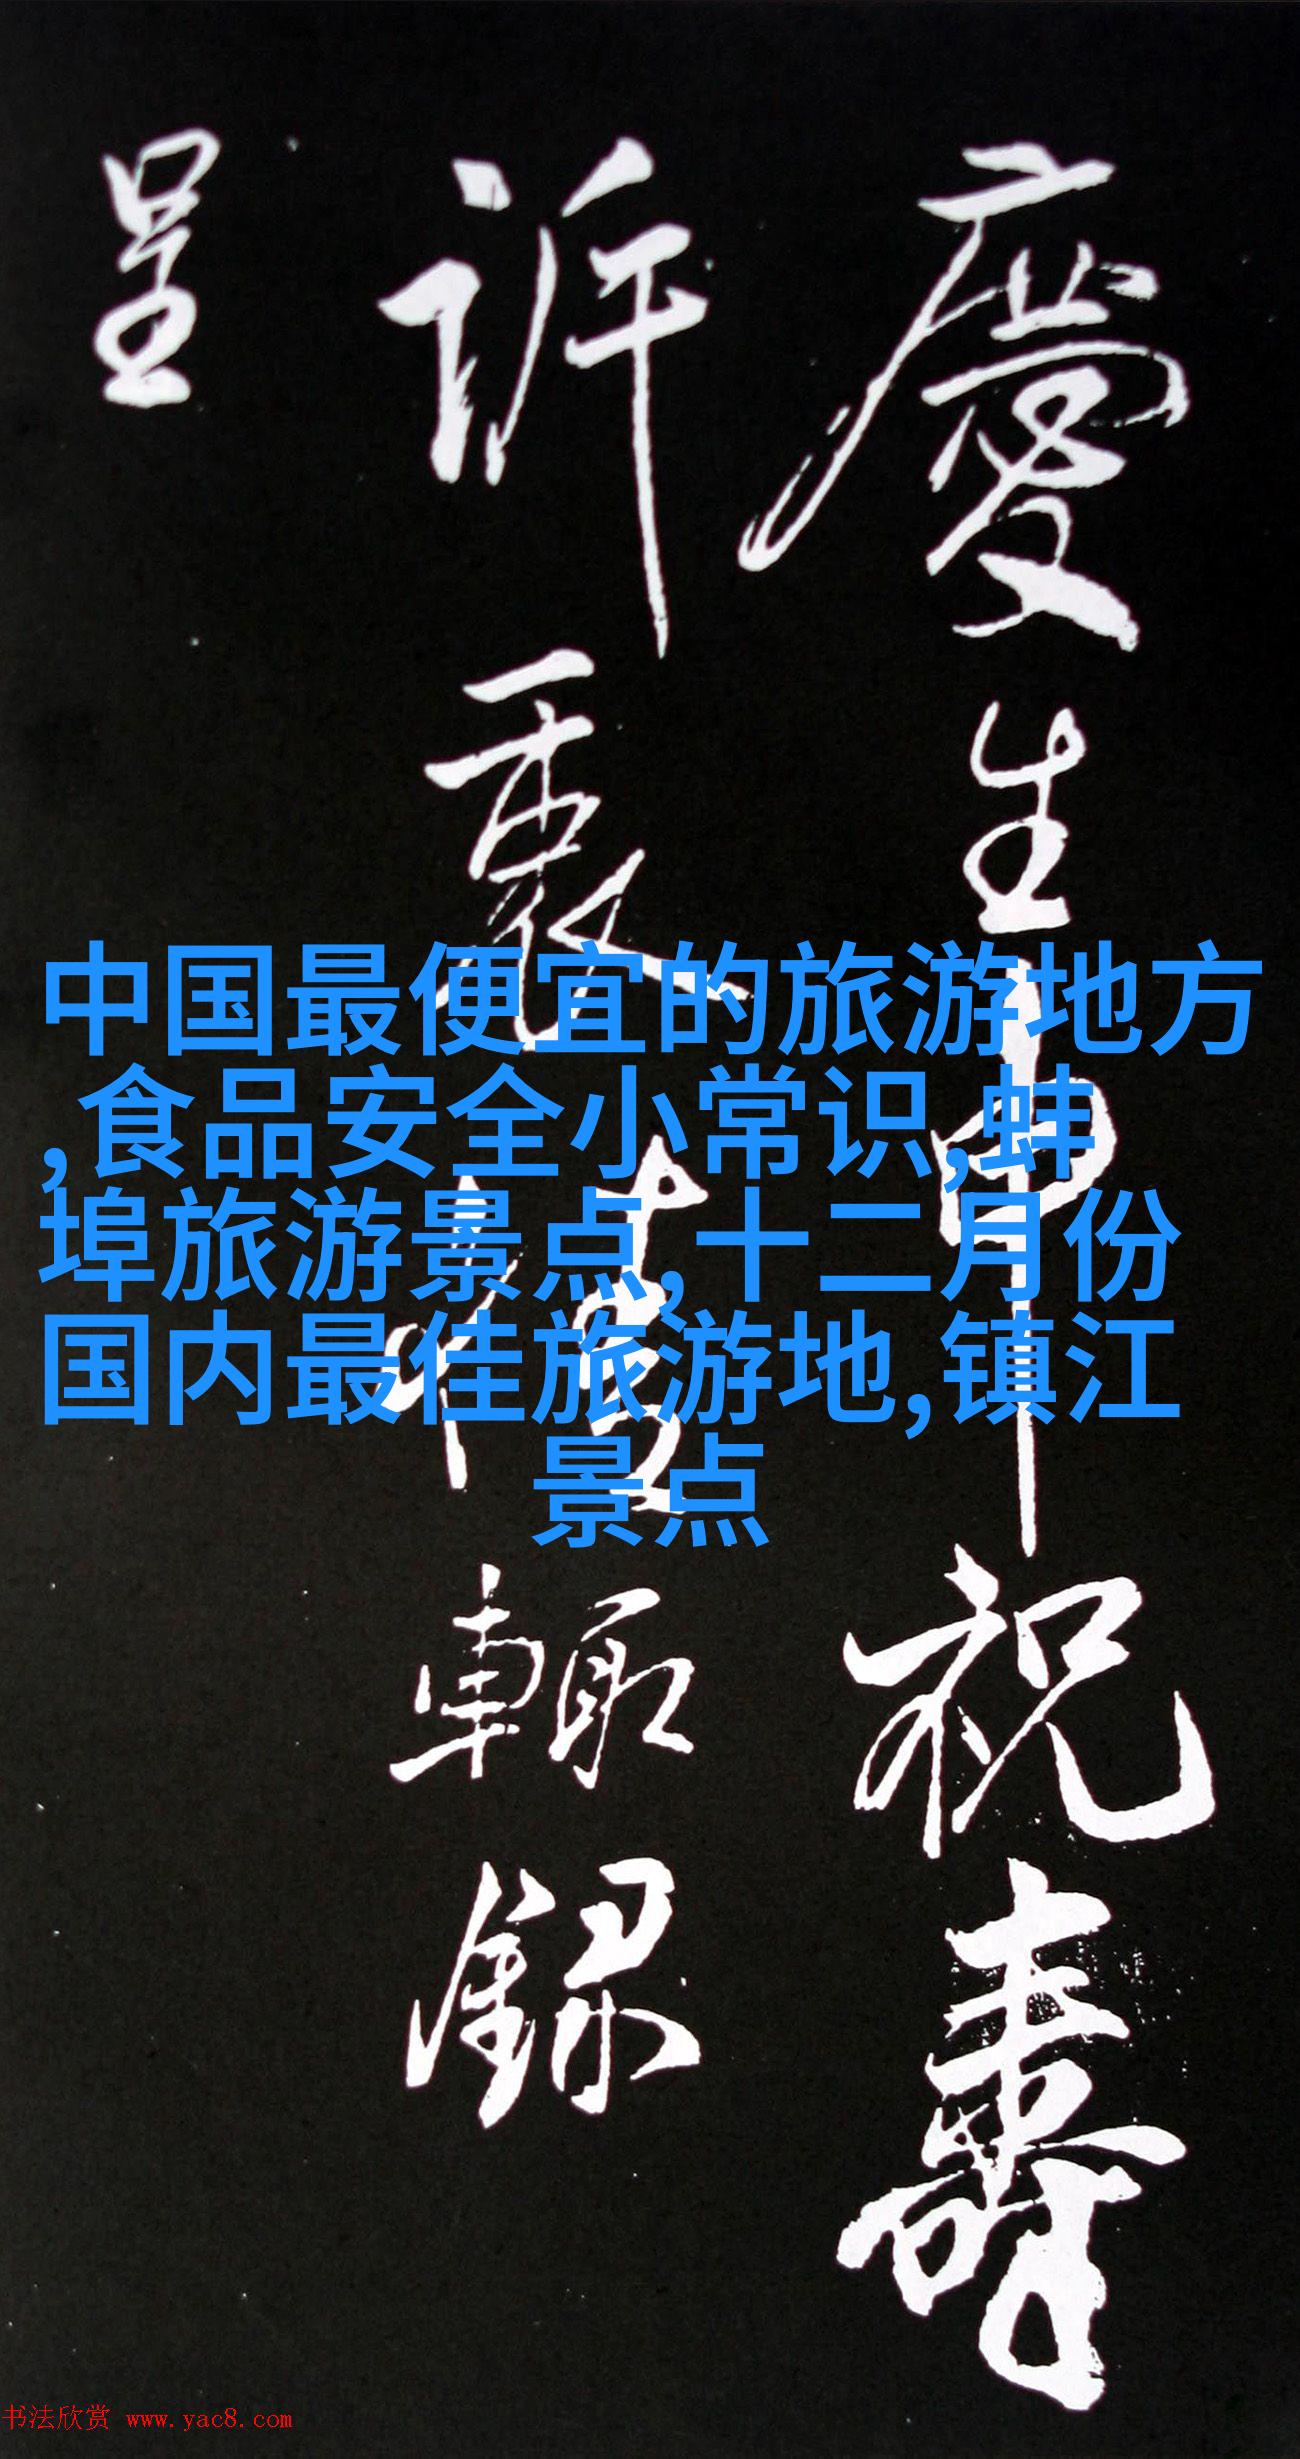 慶生申祝壽
訢衷情輙録
呈
中国最便宜的旅游地方
,食品安全小常识,蚌
埠旅游景点,十二月份
国内最佳旅游地,镇江
景点
书法欣赏 www.yac8.com